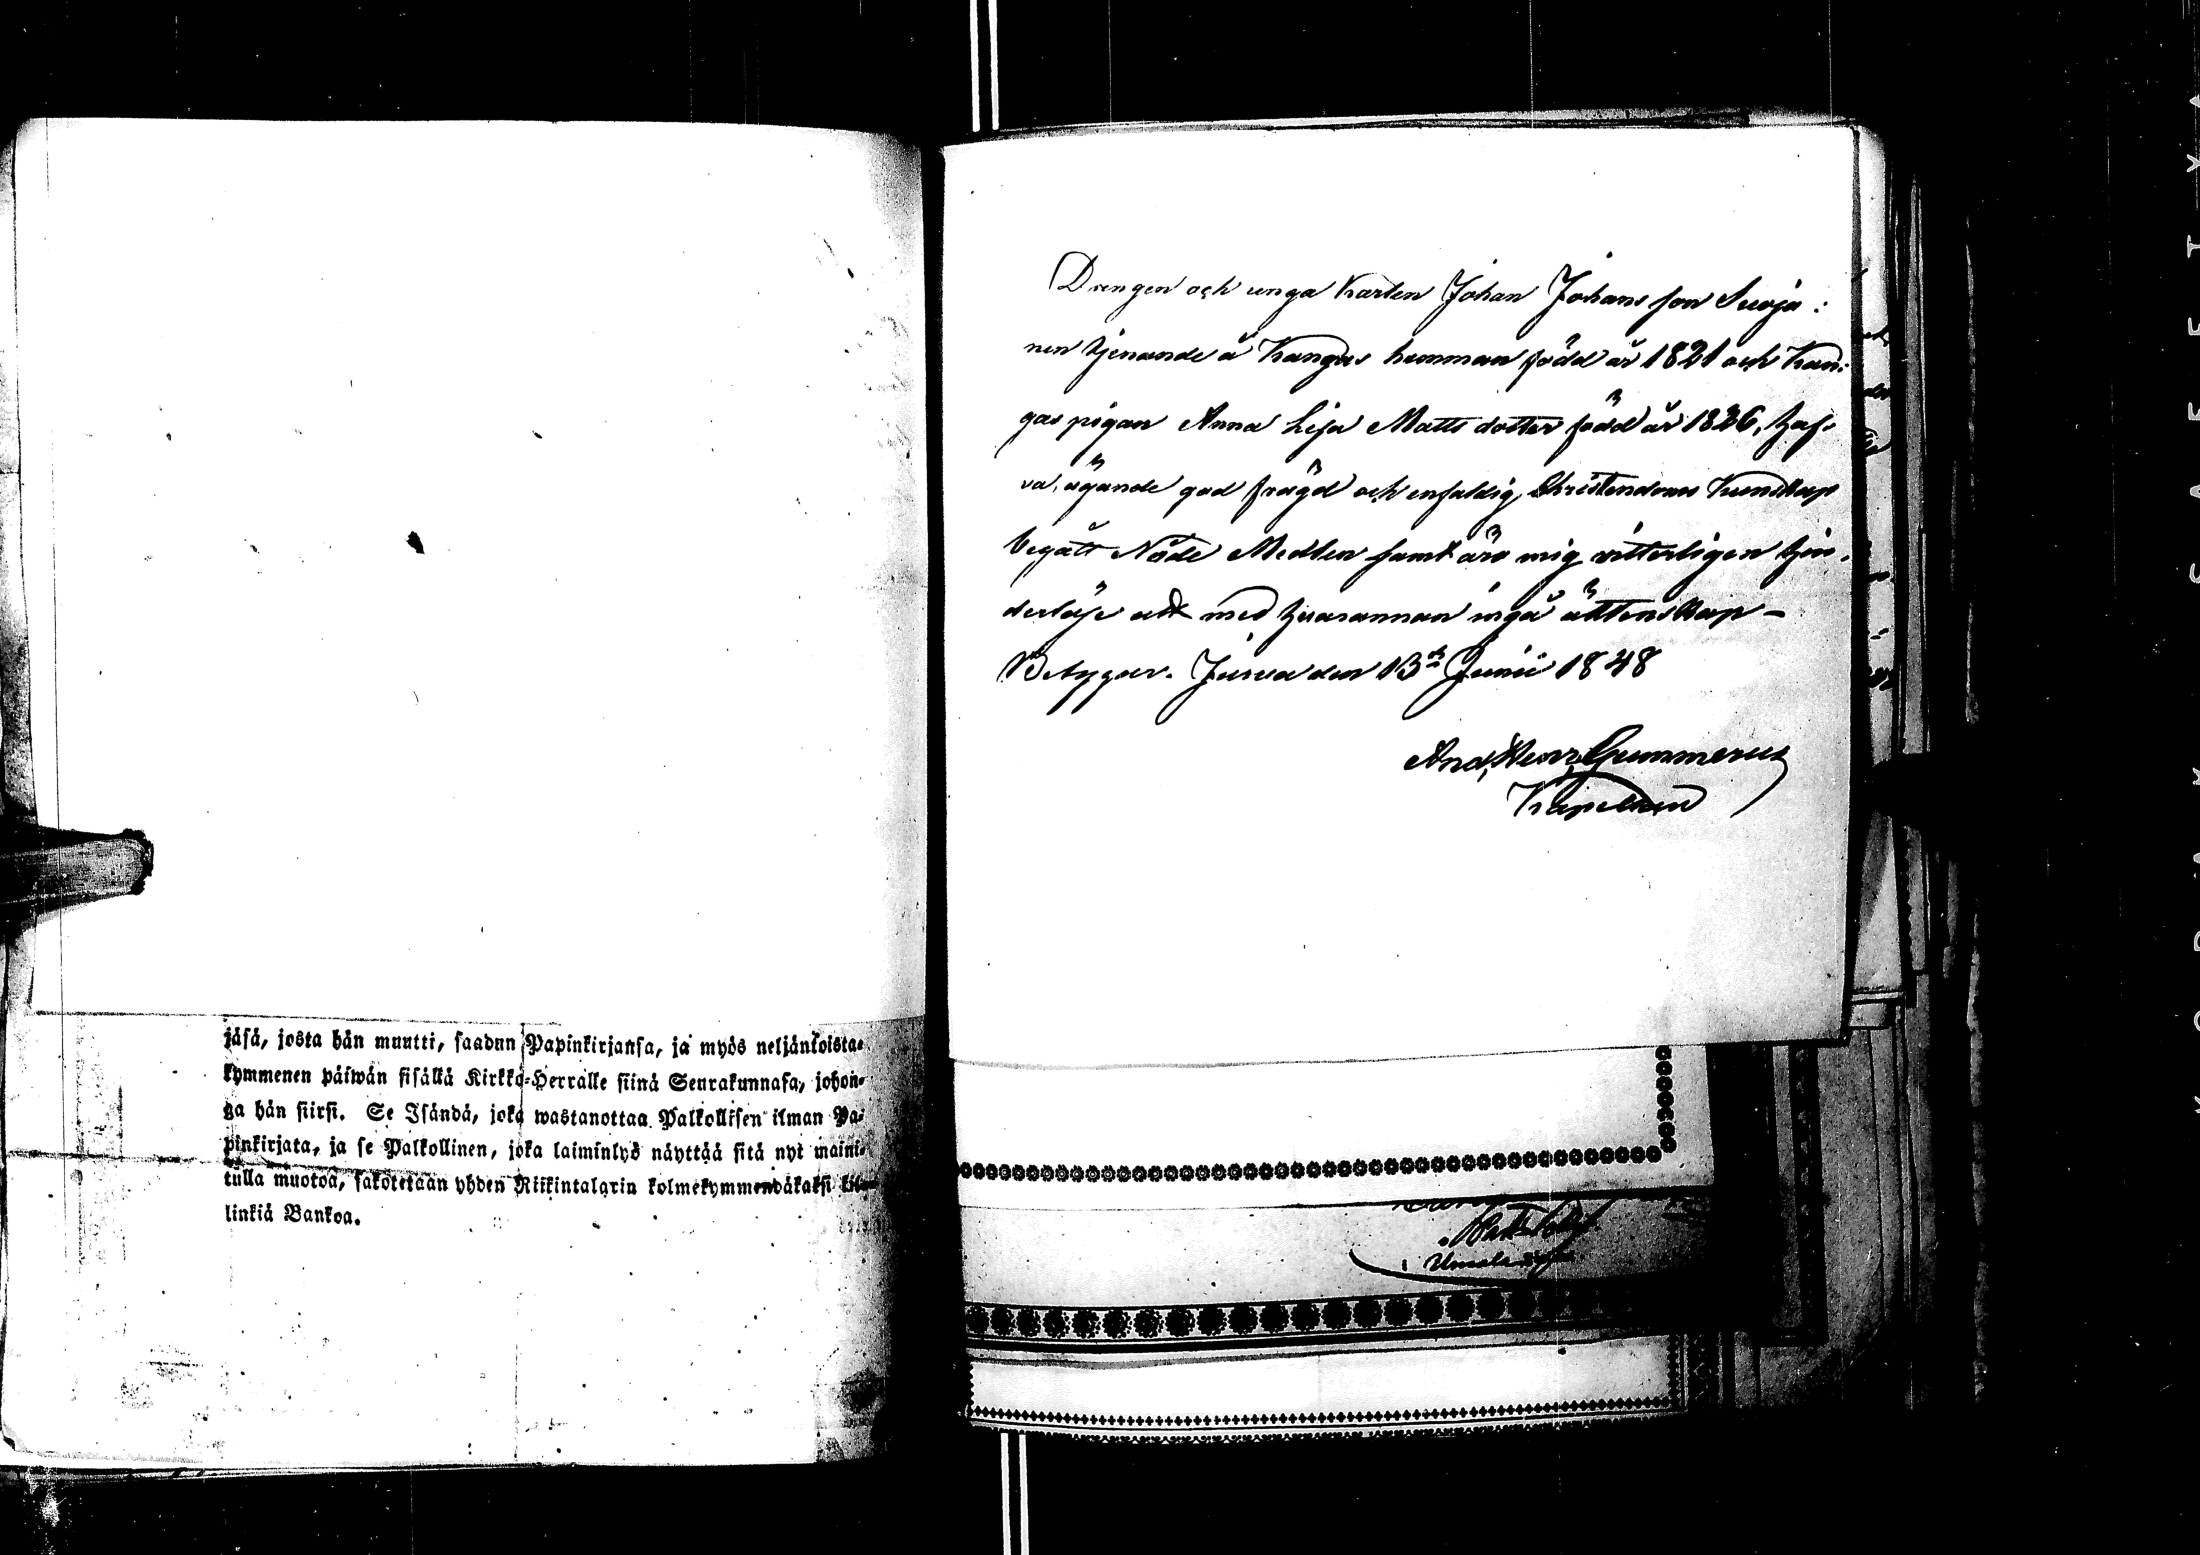 jäsä, josta hän muutti, saadun Papinkirjansa, ja myös neljäntoista-
kymmenen päiwän sisällä Kirkko-Herralle siinä Seurakunnasa, johon-
ga hän siirsi. Se Isändä, joka wastanottaa Palkollisen ilman Pa-
pinkirjata, ja se Palkollinen, joka laiminlyö näyttää sitä nyt maini-
tulla muotoa, sakotetaan yhden Riikintalarin kolmekymmendäkaksi kil-
linkiä Bankoa.
Drengen och unga Karlen Johan Johansson Suoja:
nen tjenande å Kangas hemman född år 1821 och Kan:
gas pigan Anna Lisa Matts dotter född år 1826, haf-
va, ägande god frägd och enfaldig Christendoms Kunskap
begått Nåde Medlen samt äro mig vitterligen hin-
derlöse att med hvarannan ingå ättenskap -
Betygar. Jurva den 13de Junii 1848
And. Henr. Gummerus
Kapellan